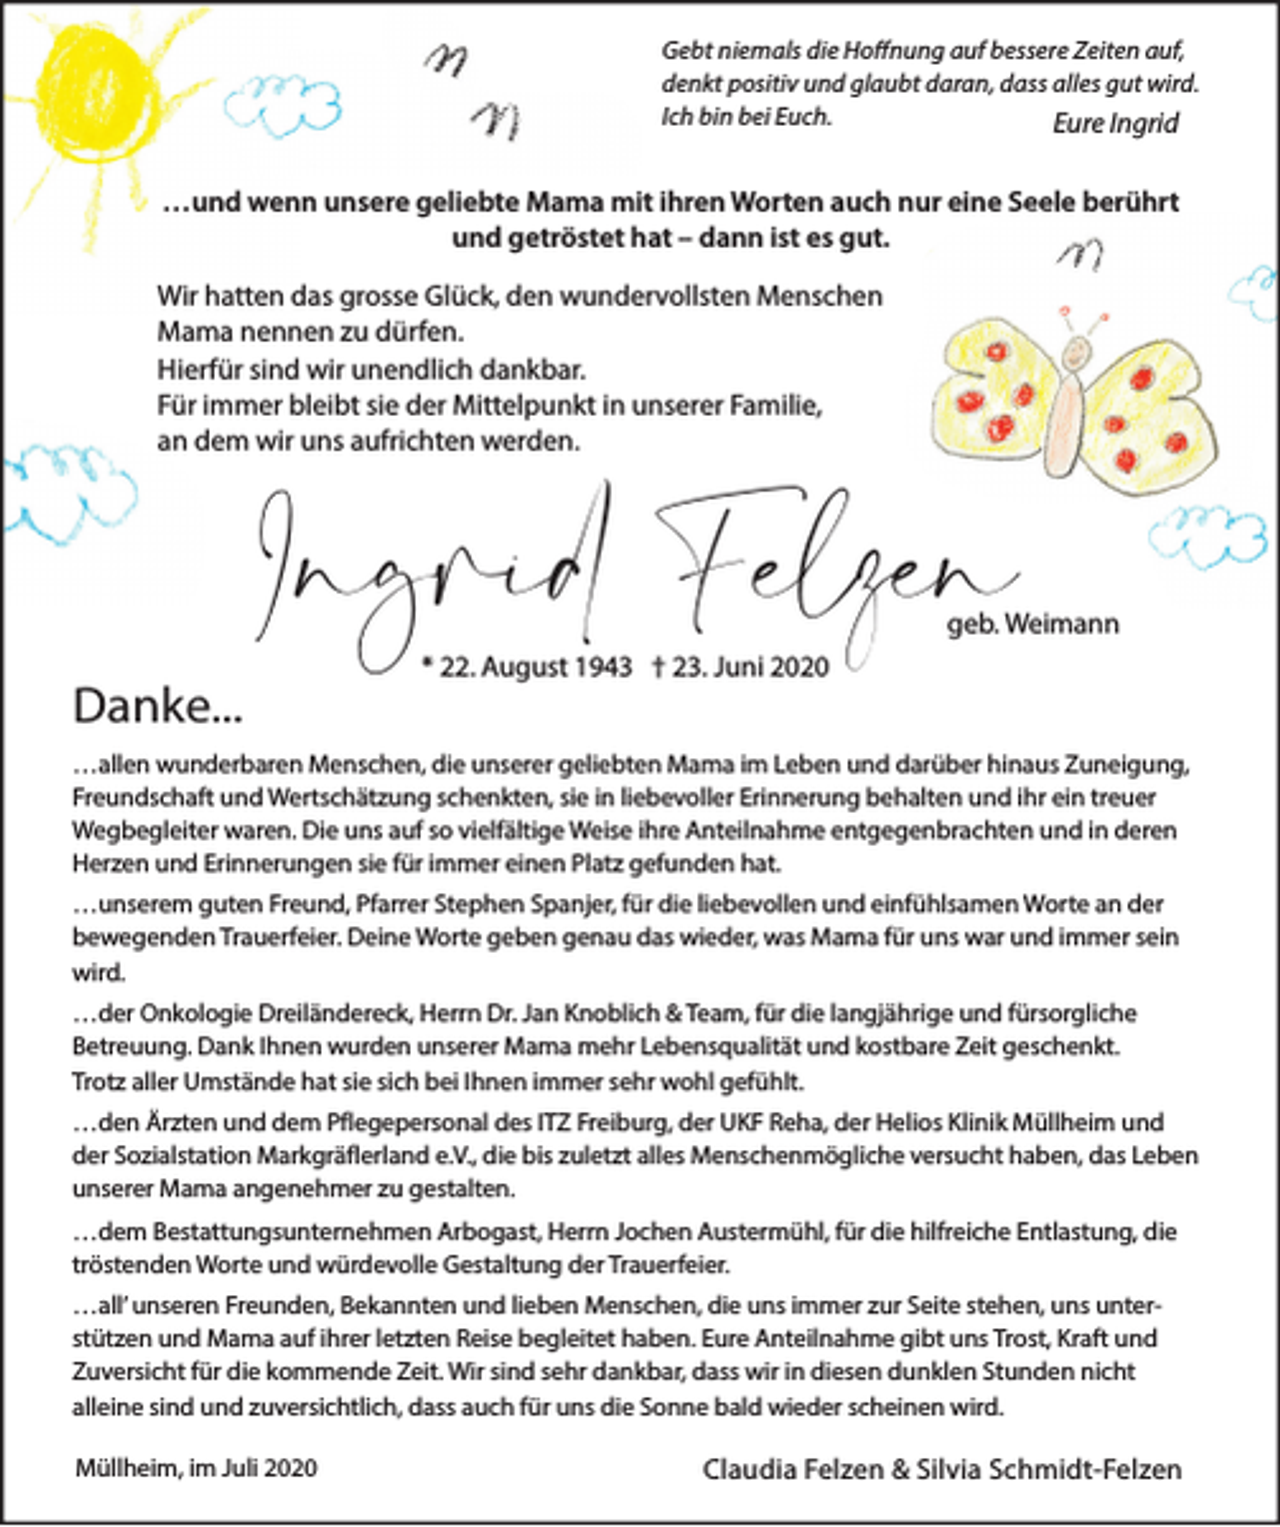 Gebt niemals die Hoffnung auf bessere Zeiten auf,
denkt positiv und glaubt daran, dass alles gut wird.
Ich bin bei Euch.
Eure Ingrid
…und wenn unsere geliebte Mama mit ihren Worten auch nur eine Seele berührt
und getröstet hat – dann ist es gut.
Wir hatten das grosse Glück, den wundervollsten Menschen
Mama nennen zu dürfen.
Hierfür sind wir unendlich dankbar.
Für immer bleibt sie der Mittelpunkt in unserer Familie,
an dem wir uns aufrichten werden.
Ingrid Felzen
geb. Weimann
* 22. August 1943 † 23. Juni 2020
Danke...
…allen wunderbaren Menschen, die unserer geliebten Mama im Leben und darüber hinaus Zuneigung,
Freundschaft und Wertschätzung schenkten, sie in liebevoller Erinnerung behalten und ihr ein treuer
Wegbegleiter waren. Die uns auf so vielfältige Weise ihre Anteilnahme entgegenbrachten und in deren
Herzen und Erinnerungen sie für immer einen Platz gefunden hat.
…unserem guten Freund, Pfarrer Stephen Spanjer, für die liebevollen und einfühlsamen Worte an der
bewegenden Trauerfeier. Deine Worte geben genau das wieder, was Mama für uns war und immer sein
wird.
…der Onkologie Dreiländereck, Herrn Dr. Jan Knoblich & Team, für die langjährige und fürsorgliche
Betreuung. Dank Ihnen wurden unserer Mama mehr Lebensqualität und kostbare Zeit geschenkt.
Trotz aller Umstände hat sie sich bei Ihnen immer sehr wohl gefühlt.
…den Ärzten und dem Pflegepersonal des ITZ Freiburg, der UKF Reha, der Helios Klinik Müllheim und
der Sozialstation Markgräflerland e.V., die bis zuletzt alles Menschenmögliche versucht haben, das Leben
unserer Mama angenehmer zu gestalten.
…dem Bestattungsunternehmen Arbogast, Herrn Jochen Austermühl, für die hilfreiche Entlastung, die
tröstenden Worte und würdevolle Gestaltung der Trauerfeier.
…all' unseren Freunden, Bekannten und lieben Menschen, die uns immer zur Seite stehen, uns unter-
stützen und Mama auf ihrer letzten Reise begleitet haben. Eure Anteilnahme gibt uns Trost, Kraft und
Zuversicht für die kommende Zeit. Wir sind sehr dankbar, dass wir in diesen dunklen Stunden nicht
alleine sind und zuversichtlich, dass auch für uns die Sonne bald wieder scheinen wird.
Müllheim, im Juli 2020
Claudia Felzen & Silvia Schmidt-Felzen